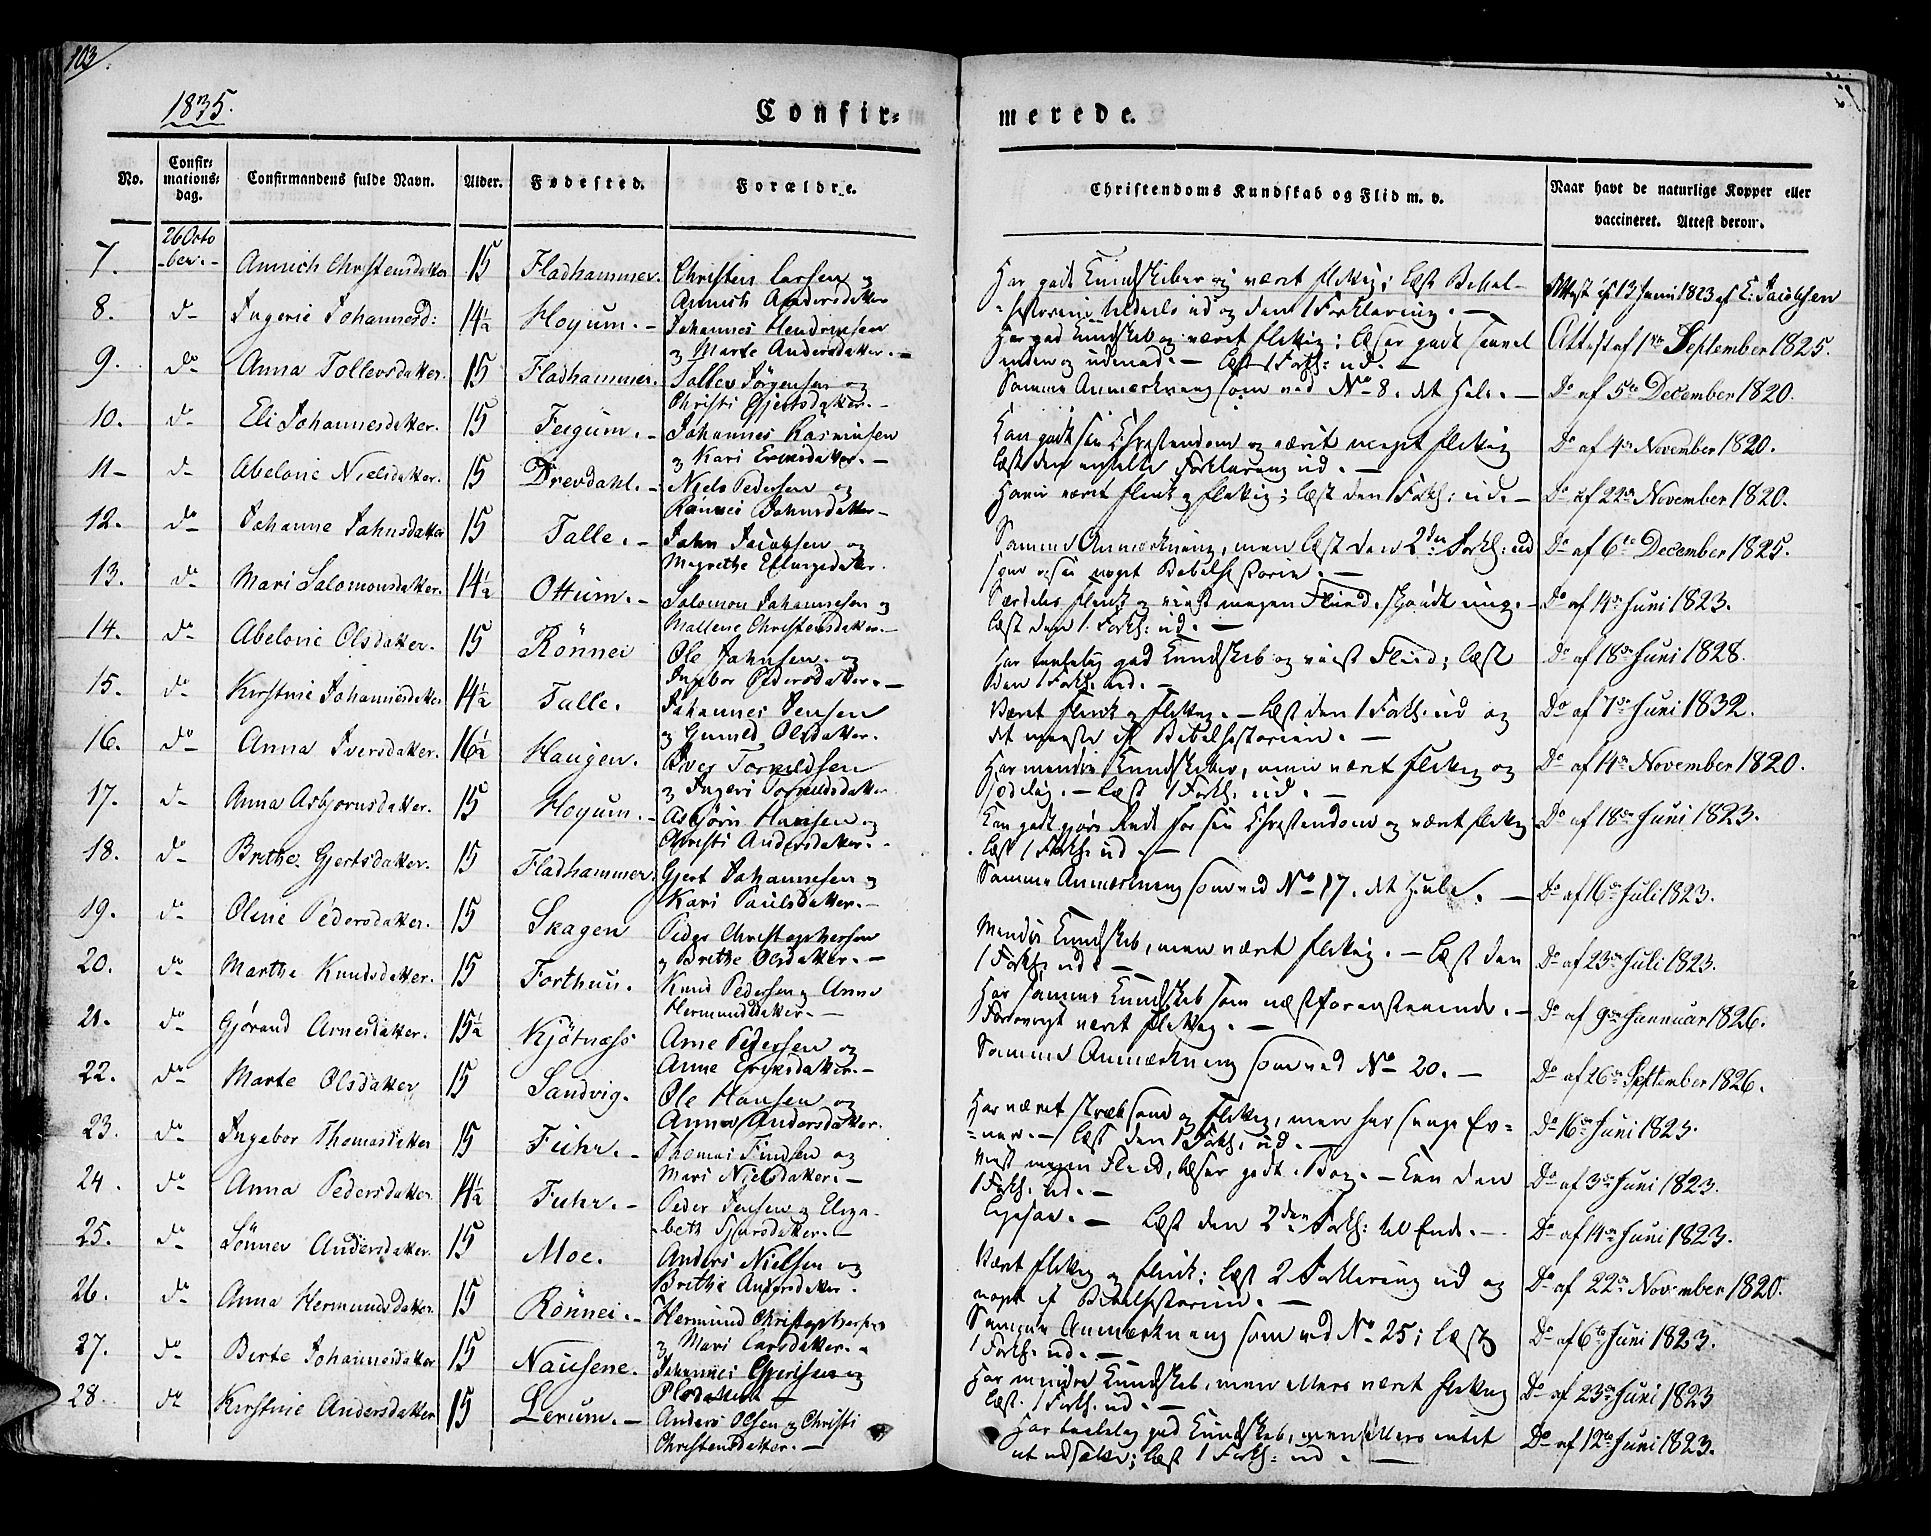 103
1835.
Confir=
merede.
No.
Confir=
mations=
dag.
Confirmandens fulde Navn.
Alder.
Fødested.
Forældre.
Christendoms Kundskab og Flid m. v.
Naar havt de naturlige Kopper eller
vaccineret. Attest derom.
7. 26 Octo
-ber.- Annich Christensdatter 15 Fladhammer. Christen Larsen og
Annich Andersdatter
Har gode Kundskaber og været flittig; læst Bibel-
historien tildeels ud og den 1 Forklaring. -
Attest af 13 Juni 1823 af C. Jacobsen
8. do Ingerie Johannesd: 14½ Høyum. - Johannes Hendriksen
og Marte Andersdatter. -
Har god Kundskab og været flittig; læser godt saavel
inden og udenad. - Læst 1 Forkl: ud. -
Attest af 1ste September 1825.
9. do Anna Tollevsdatter. 15 Fladhammer. Tollev Jörgensen og
Christi Gjertsdatter. -
Samme Anmærkning som ved No 8. det Hele. -
Do af 5te December 1820.
10. do Eli Johannesdatter. 15 Feigum. - Johannes Rasmusen
og Kari Eriksdatter. -
Kan godt sin Christendom og været meget flittig
læst den Forklaring ud. -
Do af 4de November 1820.
11- do Abelone Nielsdatter. 15 Drevdahl. - Niels Pedersen og
Rannei Johnsdatter -
været flink og flittig; læst den 1 Forkl: ud. -
Do af 22de November 1820.
12. do Johanne Johnsdatter 15 Talle. - John Jacobsen og
Magrethe
Samme Anmærkning, men læst den 2den Forkl: ud
noget Bibelhistorie. -
Do af 6te December 1825.
13. do Mari Salomonsdatter. 14½ Ottum. - Salomon Johannesen og
Mallene Christensdatter. -
Særdeles flink og viist megen Fliid, skjöndt ung. -
læst den 1 Forkl: ud. -
Do af 14de Juni 1823.
14. do Abelone Olsdatter. 15 Rönnei Ole Johnsen. og
Ingebor Pedersdatter. -
Har temmelig god Kundskab og viist Fliid; læst
den 1 Forkl. ud. -
Do af 18de Juni 1828.
15. do Kirstine Johannesdatter 14½ Talle. Johannes Jensen
og Gunild Olsdatter.
Været flink og flittig. - Læst den 1 Forkl. ud og
det meeste af Bibelhistorien. -
Do af 7de Juni 1832.
16. do Anna Iversdatter. 16½ Haugen. Iver Torkildsen
og Ingeri
Har mindre Kundskaber, men været flittig og
sædelig. - Læst 1 Forkl. ud. -
Do af 14de November 1820.
17. do Anna Asbjornsdatter. 15 Høyum. - Asbjørn Hansen og
Christi Andersdatter. -
Kan godt gjøre Rede for sin Christendom og været flittig
læst 1 Forkl. ud. -
Do af 18de Juni 1823.
18. do Brithe Gjertsdatter. 15 Fladhammer. Gjert Johannesen og
Kari Paulsdatter. -
Samme Anmærkning som ved No 17. det Hele. -
Do af 16de Juli 1823.
19. do Oline Pedersdatter. 15 Skagen Peder Christophersen
og Brithe Olsdatter. -
Mindre Kundskab, men været flittig. - Læst den
1 Forkl. ud. -
Do af 23de Juli 1823.
20. do Marthe Knudsdatter. 15 Forthun. Knud Pedersen og Anne
Hermundsdatter. -
Har samme Kundskab som næstforanstaaende. -
Forøvrigt været flittig. -
Do af 9de Januar 1826.
21. do Gjörand Arnesdatter. 15½ Kjötnæss Arne Pedersen og
Anne Eriksdatter. -
Samme Anmærkning som ved No 20. -
Do af 26de September 1826.
22. do Marte Olsdatter 15 Sandvig. Ole Hansen og
Anna Andersdatter.
Har været stræbsom og flittig, men har svage Ev=
=ner. - læst den 1 Forkl. ud. -
Do 16de Juni 1823.
23. do Ingebor Thomasdatter 15 Fuhr. - Thomas Finsen og
Mari Nielsdatter. -
Viist megen Fliid, læser godt i Bog. - Kan den
1 Forkl. ud. -
Do af 3de Juni 1823.
24. do Anna Pedersdatter. 14½ Fuhr. - Peder Jensen og Elisa-
-beth Sjursdatter. -
Ligesaa. - Læst den 2den Forkl: til Ende. -
Do af 14de Juni 1823.
25. do Sönnev Andersdatter. 15 Moe. Anders Nielsen og
Brithe Andersdatter.
Været flittig og flink; læst 2 Forklaring ud og
noget af Bibelhistorien. -
Do af 22de November 1820.
26. do Anna Hermundsdatter. 15 Rönnei. - Hermund Christophersen
og Mari Larsdatter. -
Samme Anmærkning som ved No 25; læst
1 Forkl. ud. -
Do af 6te Juni 1823.
27. do Berte Johannesdatter 15 Nausene. Johannes Gjertsen og
-
Har mindre Kundskab, men ellers været flittig
læst 1 Forkl. ud. -
Do af 23de Juni 1823
28. do Kirstine Andersdatter 15 Lerum. - Anders Olsen og Christi
Christensdatter. -
Har temmelig god Kundskab, men ellers intet
at udsætte; læst 1 Forkl: ud. -
Do af 12te Juni 1823.